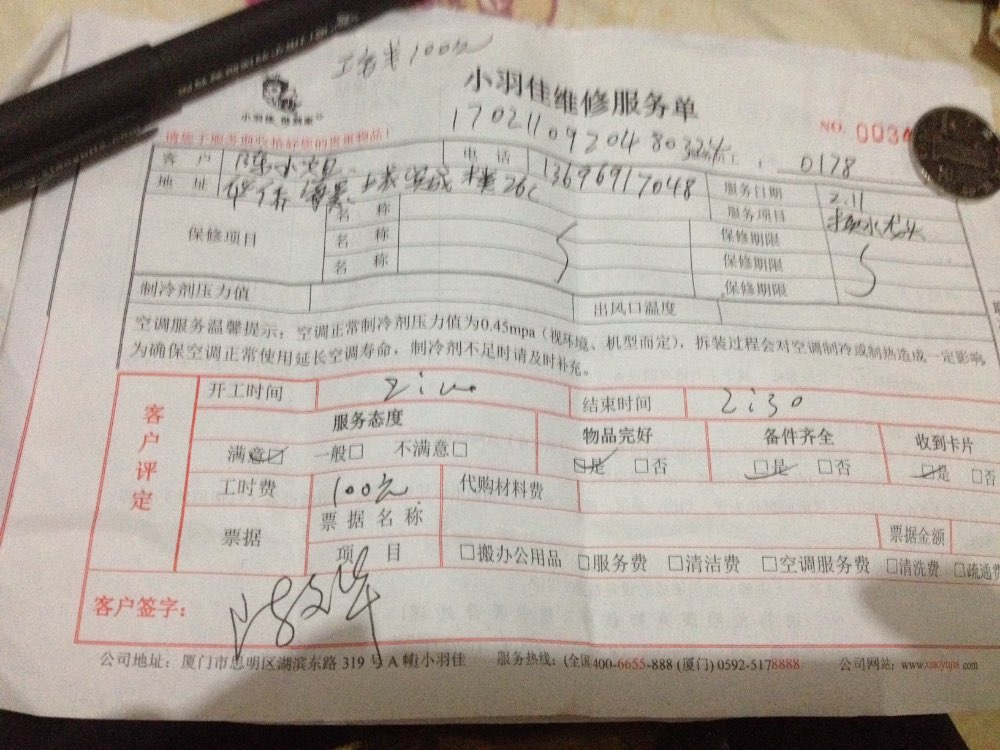 100元
小羽佳维修服务单
小羽佳
请您于服务前收拾好您的贵重物品!
NO. 003
1702110920480324
0178
客 户 陈小姐 电 话 13696917048 服务日期 2.11
地 址 26C 服务项目 换水龙头
保修项目 名 称 保修期限
名 称 保修期限
名 称 保修期限
制冷剂压力值 出风口温度
空调服务温馨提示:空调正常制冷剂压力值为0.45mpa(视环境、机型而定),拆装过程会对空调制冷或制热造成一定影响
为确保空调正常使用延长空调寿命,制冷剂不足时请及时补充。
客户评定
开工时间 结束时间 2130
服务态度 物品完好 备件齐全 收到卡片
满意☑ 一般□ 不满意□ ☑是 □否 ☑是 □否 ☑是 □否
工时费 100元 代购材料费
票据 票据名称 票据金额
项 目 □搬办公用品 □服务费 □清洁费 □空调服务费 □清洗费 □疏通费
客户签字:
公司地址:厦门市思明区湖滨东路 319 号 A 幢小羽佳 服务热线:(全国400-6655-888 (厦门) 0592-5178888 公司网站:www.xiaoyujia.com